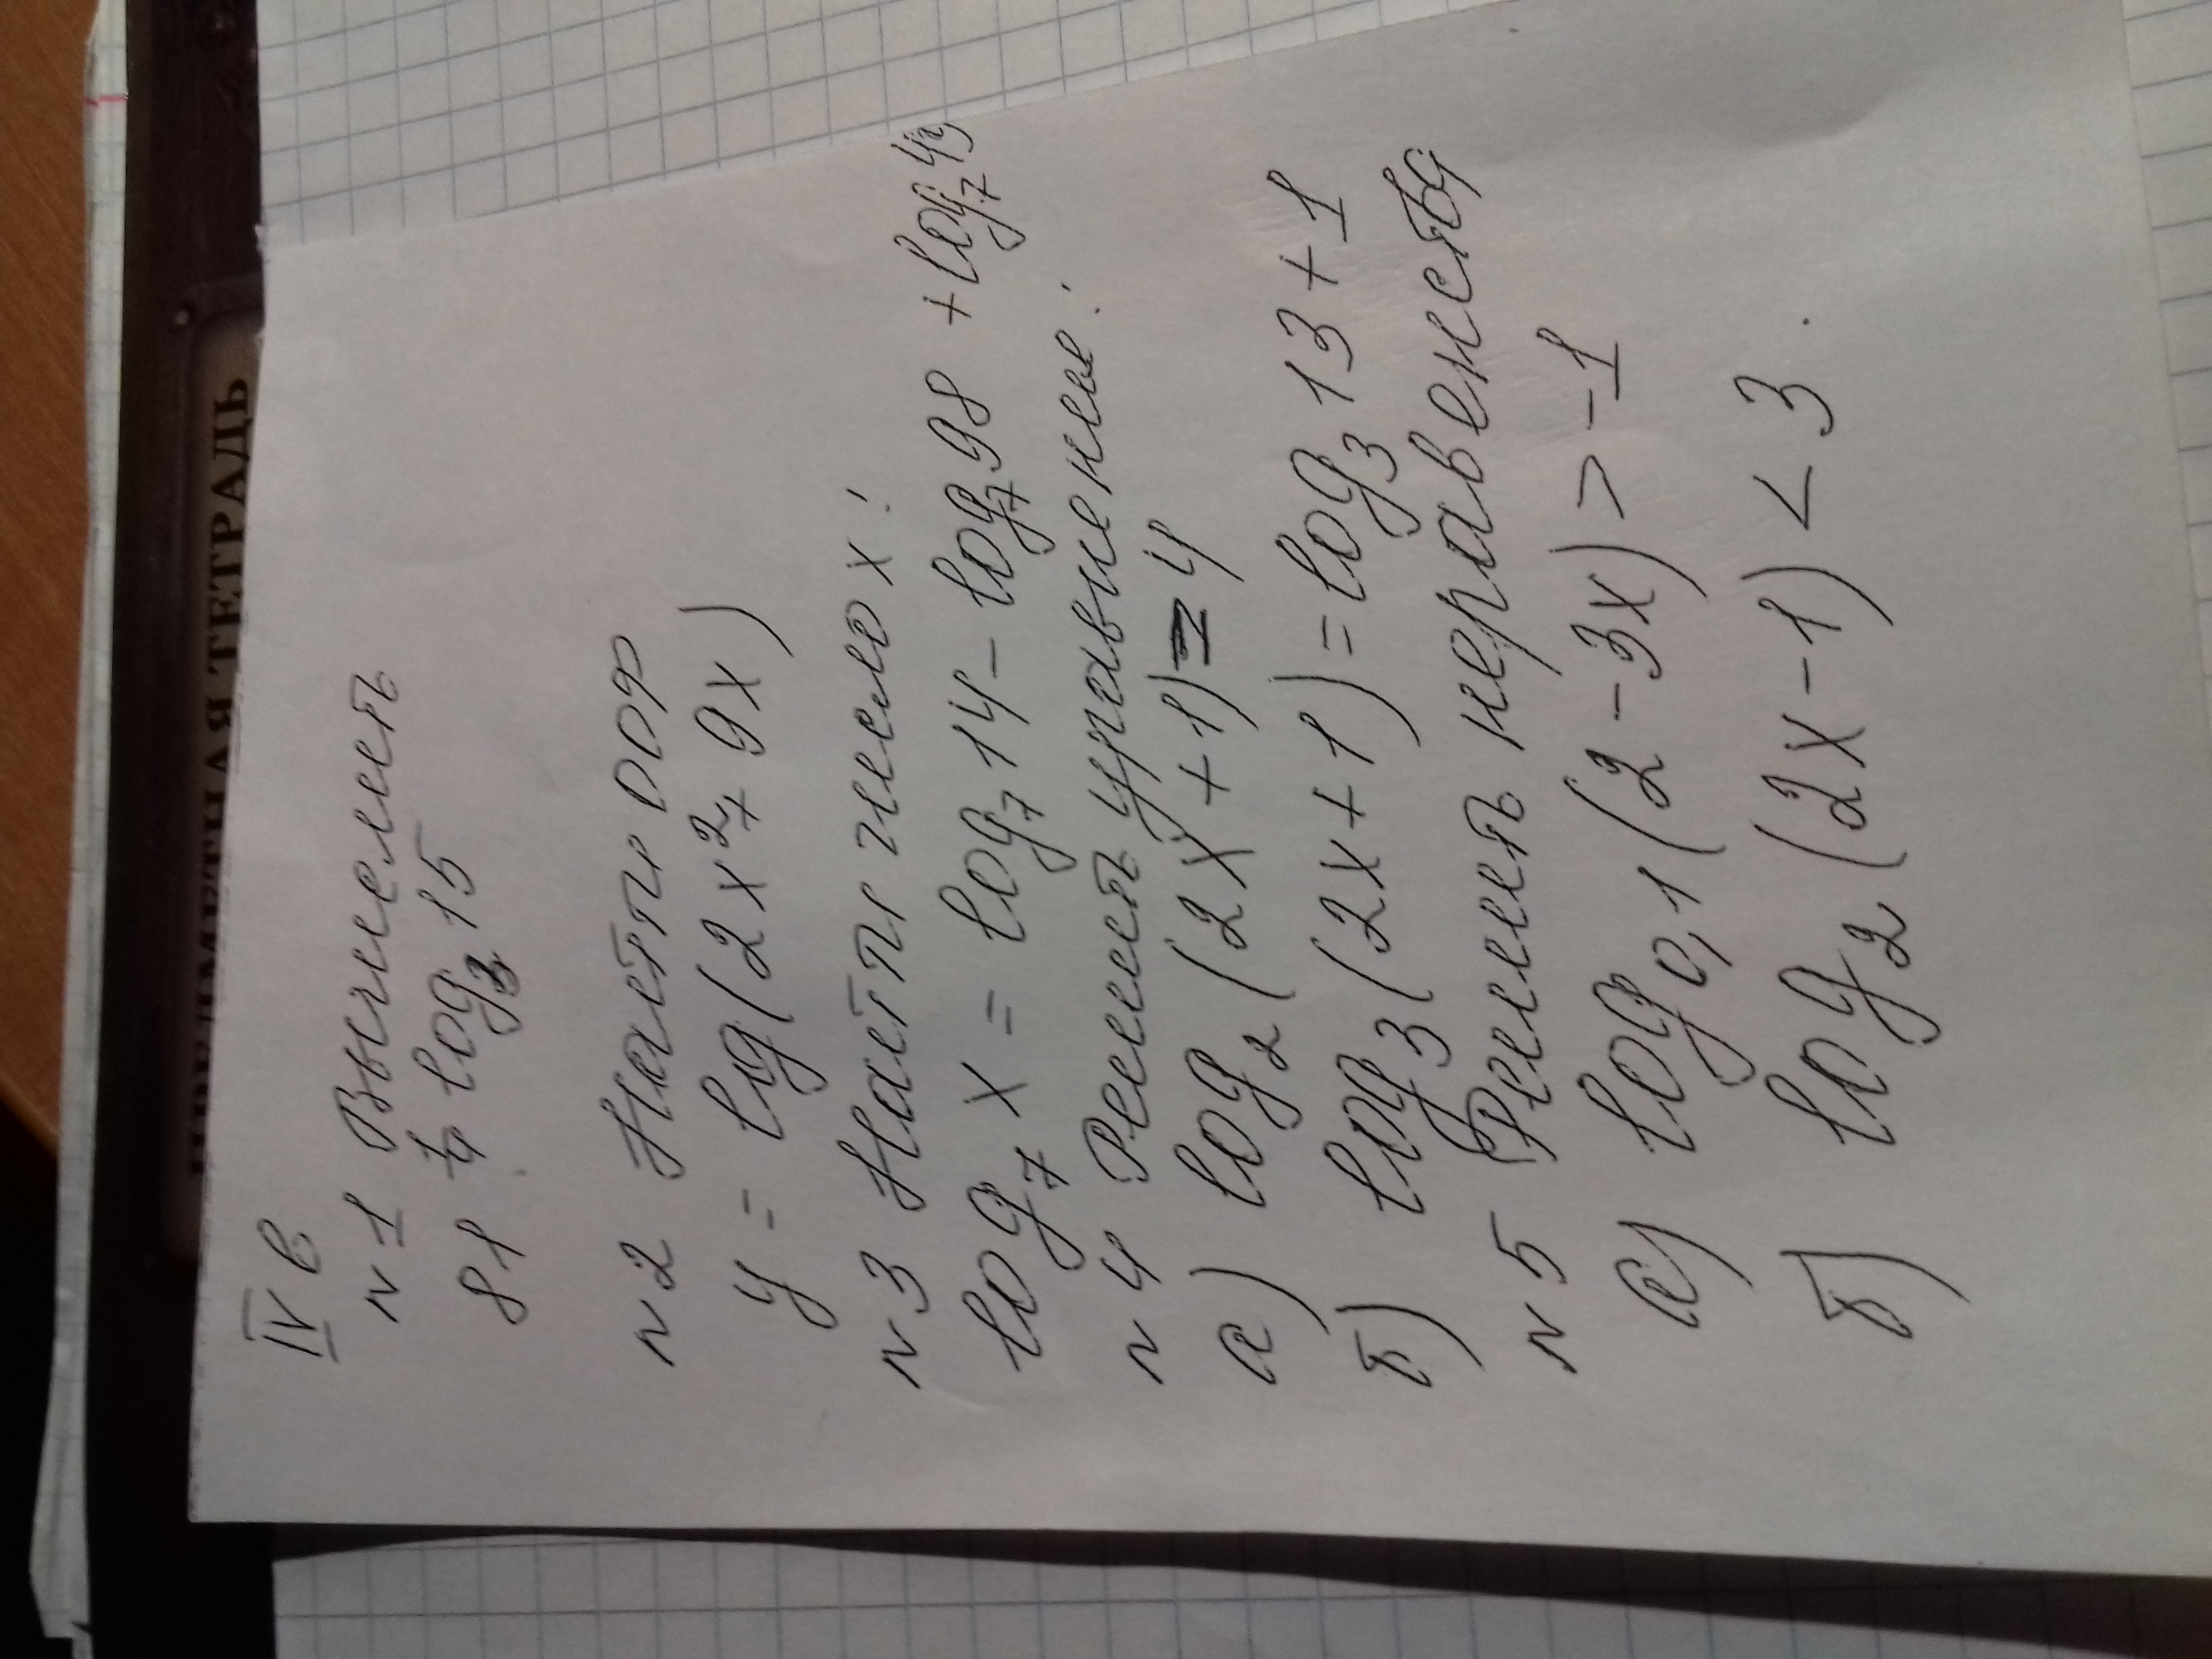 ПРЕДМЕТНАЯ ТЕТРАДЬ
IV в
N 1 Вычислить
81 ¼ log₃ 15
N 2 Найти ООФ
y = lg(2x² + 9x)
N 3 Найти число x:
log₇ x = log₇ 14 - log₇ 98 + log₇ 49
N 4 Решить уравнения:
а) log₂(2x+1)=4
б) log₃(2x+1)=log₃ 13+1
N 5 Решить неравенства
а) log₀,₁(2-3x)>-1
б) log₂(2x-1)<3.